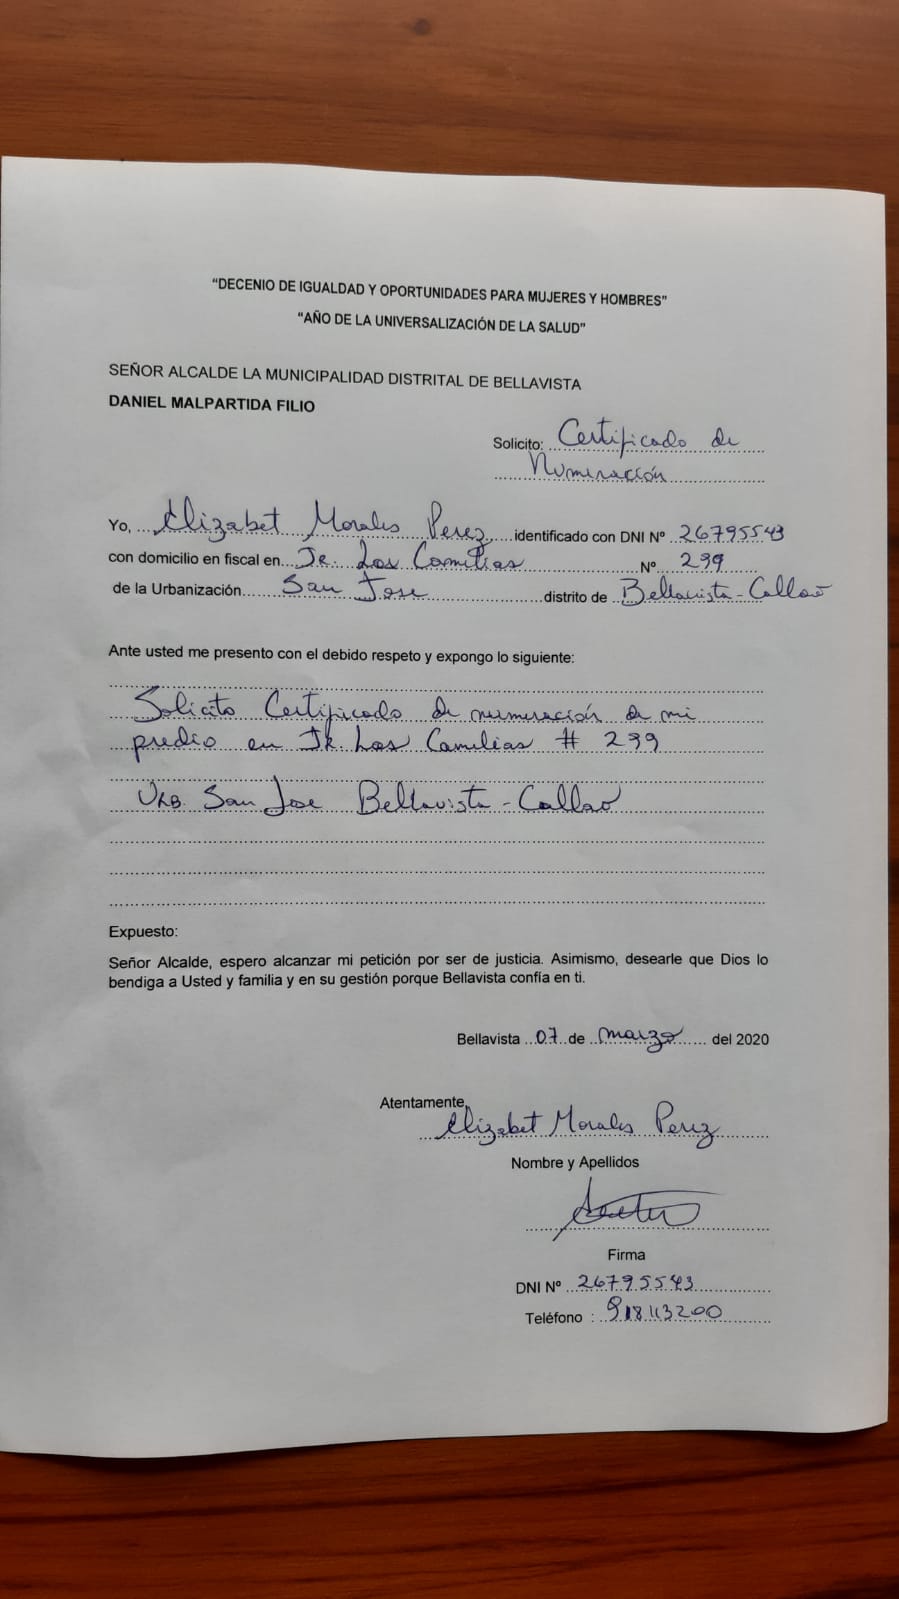 “DECENIO DE IGUALDAD Y OPORTUNIDADES PARA MUJERES Y HOMBRES”
“AÑO DE LA UNIVERSALIZACIÓN DE LA SALUD”
SEÑOR ALCALDE LA MUNICIPALIDAD DISTRITAL DE BELLAVISTA
DANIEL MALPARTIDA FILIO
Solicito: Certificado de
Numeración
Yo, Elizabet Morales Perez identificado con DNI Nº 26795543
con domicilio en fiscal en Jr. Los Camilias Nº 299
de la Urbanización San Jose distrito de Bellavista - Callao
Ante usted me presento con el debido respeto y expongo lo siguiente:
Solicito Certificado de numeración de mi
predio en Jr. Los Camilias # 299
Urb. San Jose Bellavista - Callao
Expuesto:
Señor Alcalde, espero alcanzar mi petición por ser de justicia. Asimismo, desearle que Dios lo
bendiga a Usted y familia y en su gestión porque Bellavista confía en ti.
Bellavista 07 de marzo del 2020
Atentamente,
Elizabet Morales Perez
Nombre y Apellidos
Firma
DNI Nº 26795543
Teléfono : 918113200